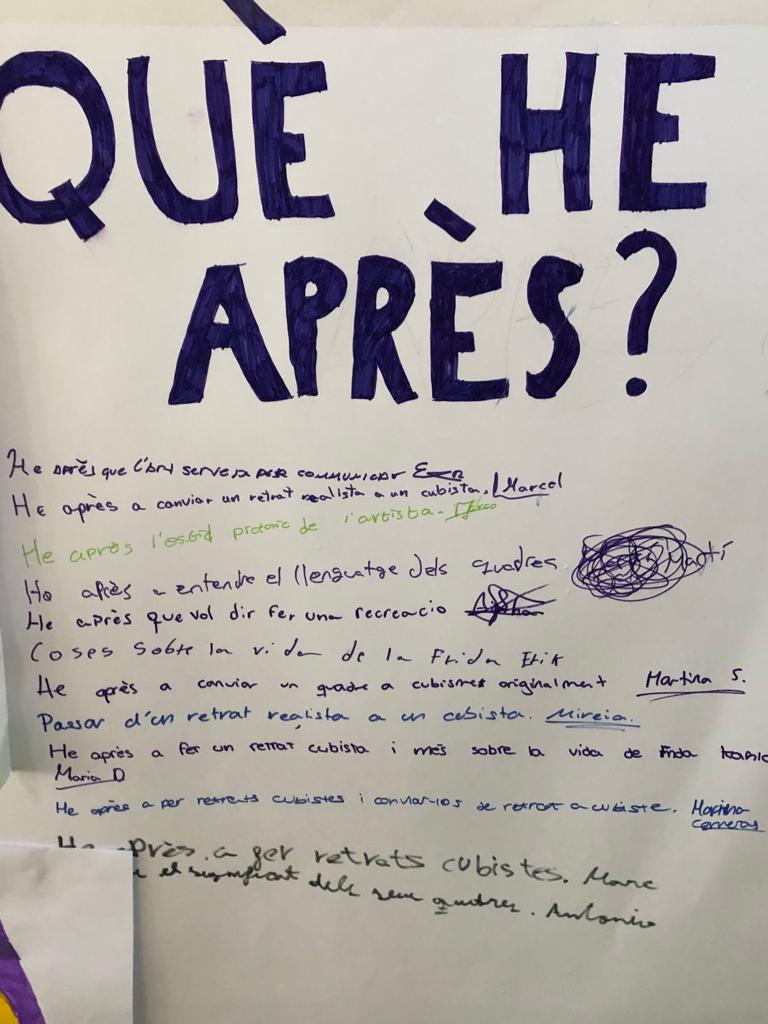 QUÈ HE
APRÈS?
He après que l'art serveix per communicar
He après a canviar un retrat realista a un cubista. Marcel
He après l'estid pictoric de l'artista.
He après a entendre el llenguatge dels quadres Martí
He après que vol dir fer una recreacio
Coses sobre la vida de la Frida Erik
He après a canviar un quadre a cubismes originalment Martina S.
Passar d'un retrat realista a un cubista. Mireia.
He après a fer un retrat cubista i més sobre la vida de Frida
Maria D
He après a per retrats cubistes i canviar-los de retrat a cubiste. Martina
Carreras
près a fer retrats cubistes. Marc
el significat dels seus quadres. Antonio